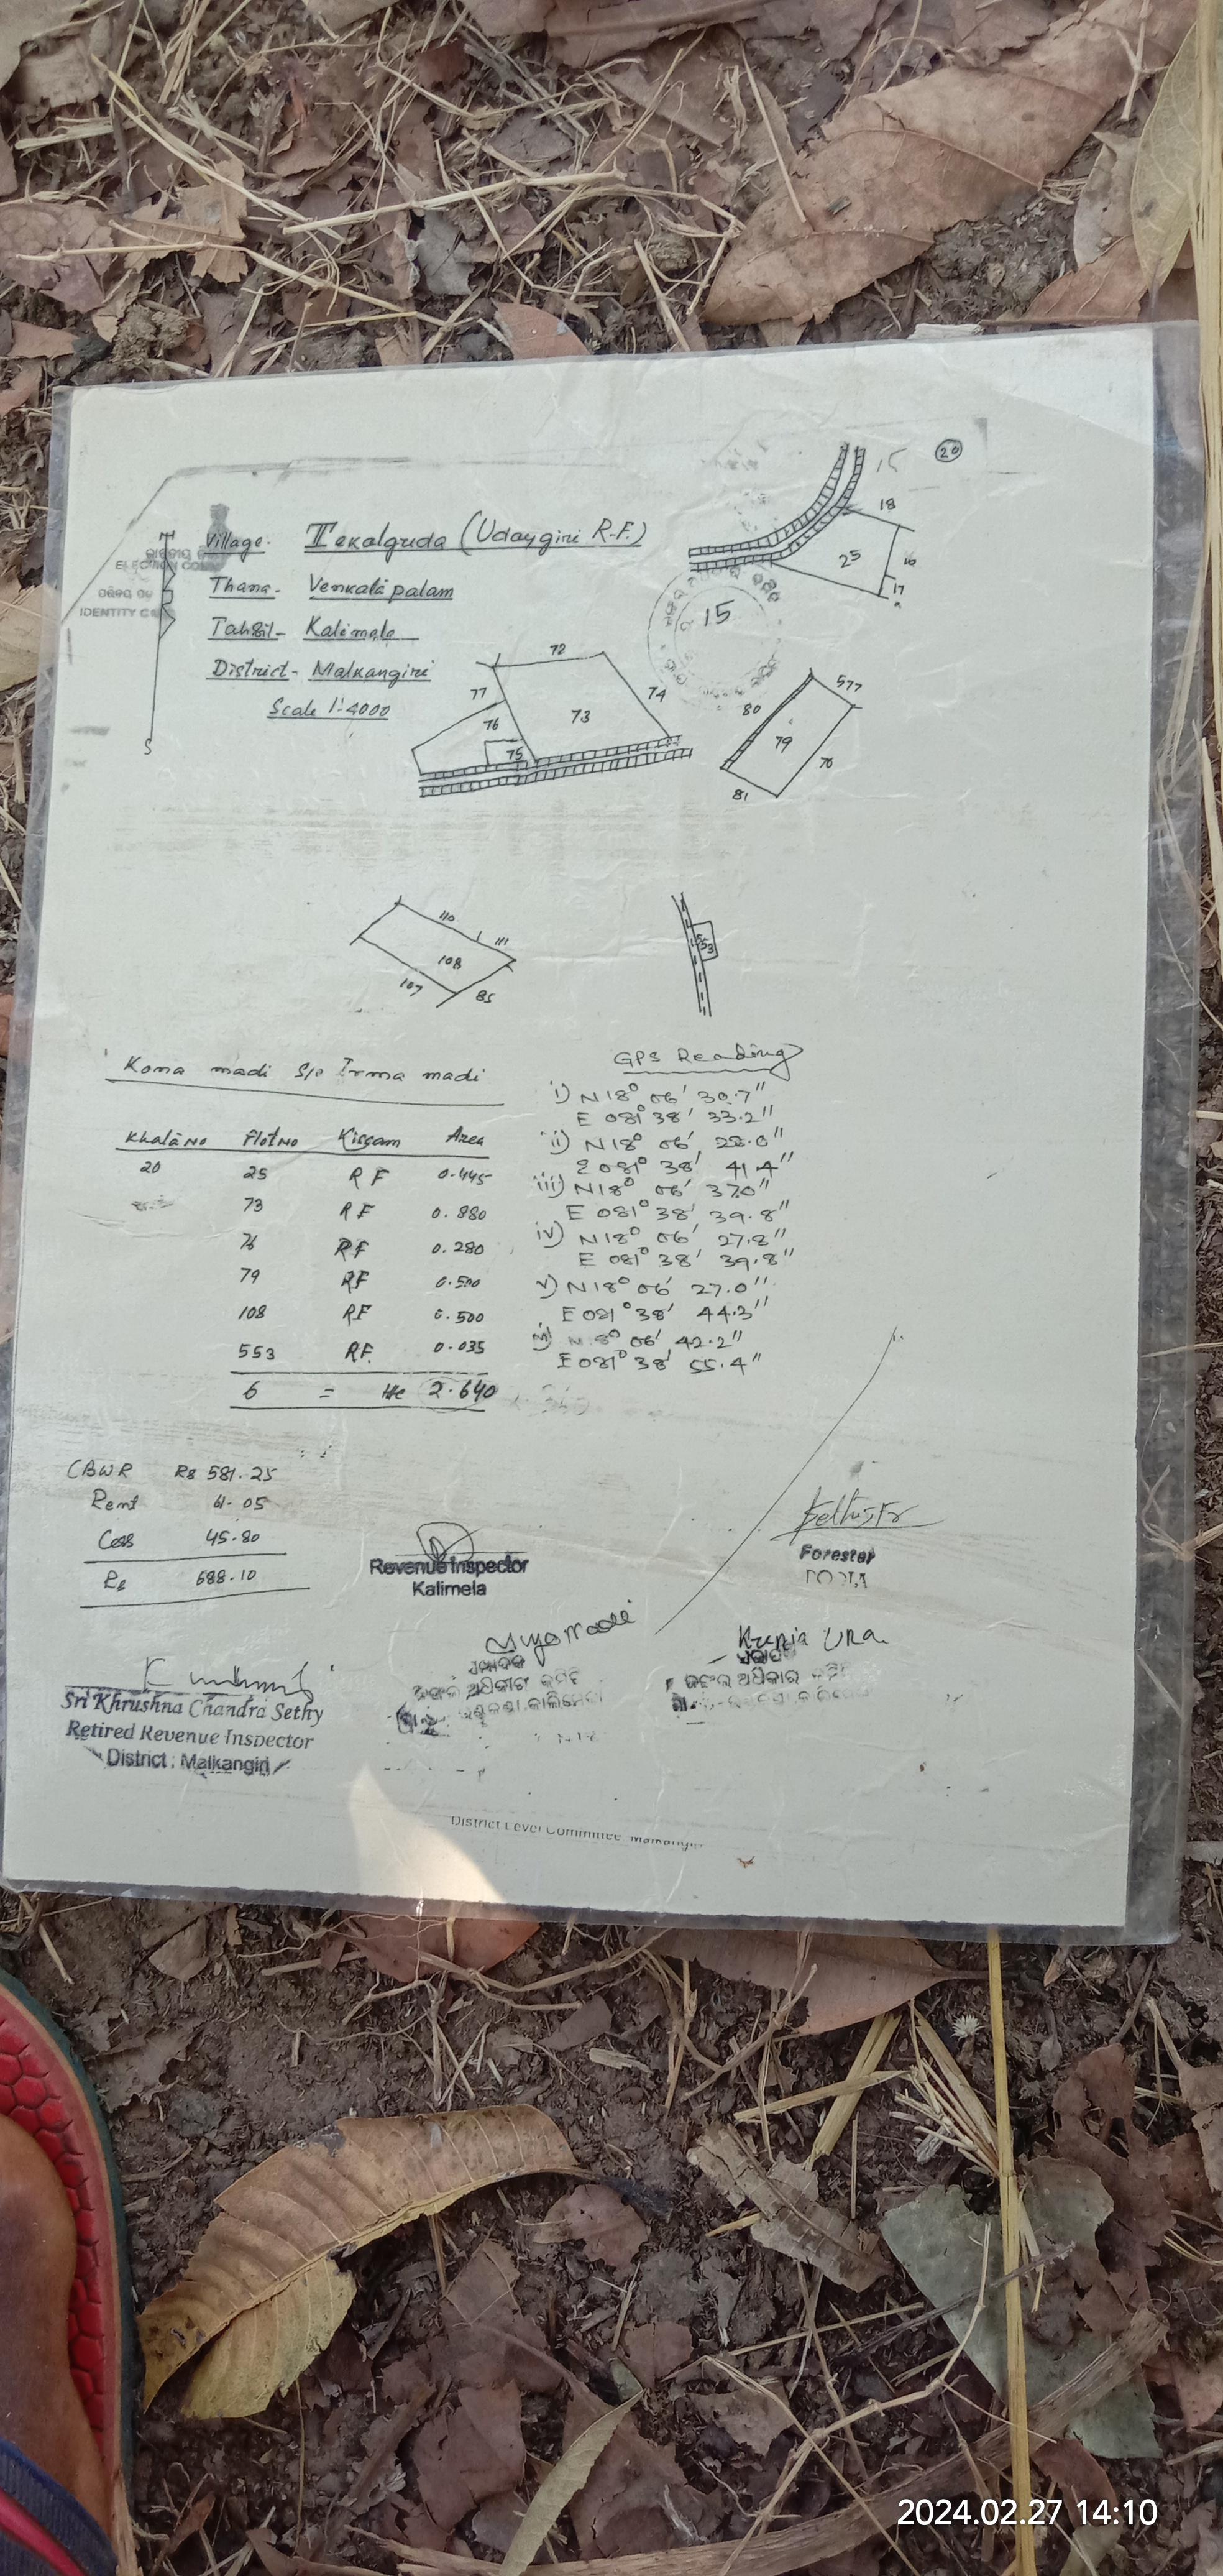 20
15
Village- Tekalguda (Udaygiri R.F.)
Thana- Venkatapalam
Tahsil- Kalimela
District- Malkangiri
Scale 1:4000
S
IDENTITY
18
25
16
17
15
72
77
76
73
74
75
577
80
79
78
81
110
111
108
107
85
553
Koma madi S/o Irma madi
GPS Reading
i) N 18° 06' 30.7"
E 081° 38' 33.2"
ii) N 18° 06' 28.0"
E 081° 38' 41.4"
iii) N 18° 06' 37.0"
E 081° 38' 39.8"
iv) N 18° 06' 27.8"
E 081° 38' 39.8"
v) N 18° 06' 27.0"
E 081° 38' 44.3"
vi) N 18° 06' 42.2"
E 081° 38' 55.4"
Khata No Plot No Kissam Area
20 25 RF 0.445
73 RF 0.880
76 RF 0.280
79 RF 0.500
108 RF 0.500
553 RF. 0.035
6 = He 2.640
CBWR Rs 581.25
Rent 61.05
Cess 45.80
Rs 688.10
Revenue Inspector
Kalimela
Forester
Sri Khrushna Chandra Sethy
Retired Revenue Inspector
District : Malkangiri
ଜଙ୍ଗଲ ଅଧିକାର
District Level Committee Malkangiri
2024.02.27 14:10